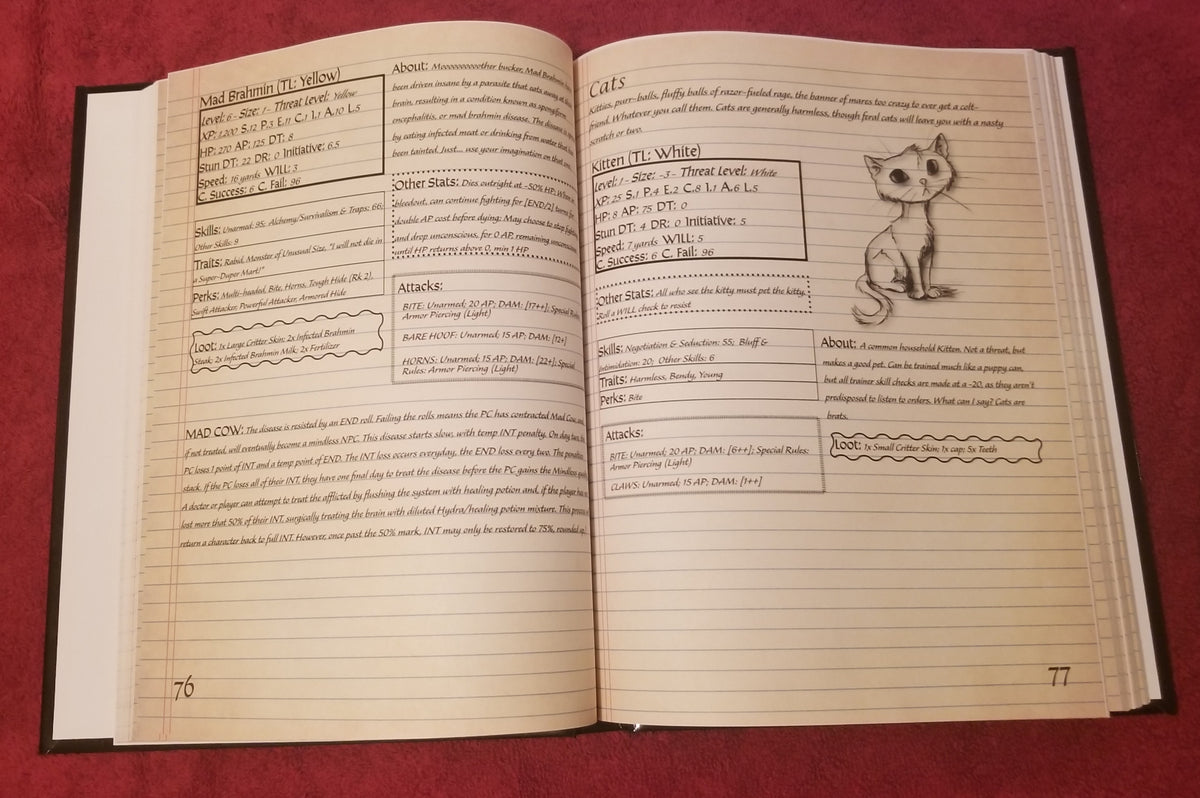 Mad Brahmin (TL: Yellow)
Level: 6 - Size: 1 - Threat Level: Yellow
XP: 1,200 S.12 P.3 E.11 C.1 I.1 A.10 L.5
HP: 270 AP: 125 DT: 8
Stun DT: 22 DR: 0 Initiative: 6.5
Speed: 16 yards WILL: 3
C. Success: 6 C. Fail: 96
Skills: Unarmed: 95; Alchemy/Survivalism & Traps: 66;
Other Skills: 9
Traits: Rabid, Monster of Unusual Size, "I will not die in
a Super-Duper Mart!"
Perks: Multi-headed, Bite, Horns, Tough Hide (Rk 2),
Swift Attacker, Powerful Attacker, Armored Hide
Loot: 1x Large Critter Skin; 2x Infected Brahmin
Steak; 2x Infected Brahmin Milk; 2x Fertilizer
About: Mooooooooother bucker, Mad Brahmin
been driven insane by a parasite that eats away at
brain, resulting in a condition known as spongiform
encephalitis, or mad brahmin disease. The disease is
by eating infected meat or drinking from water that
been tainted. Just... use your imagination on that one.
Other Stats: Dies outright at -50% HP; When in
bleedout, can continue fighting for [END/2] turns for
double AP cost before dying; May choose to stop fighting
and drop unconscious, for 0 AP, remaining unconscious
until HP returns above 0, min 1 HP.
Attacks:
BITE: Unarmed; 20 AP; DAM: [17++]; Special Rules:
Armor Piercing (Light)
BARE HOOF: Unarmed; 15 AP; DAM: [12+]
HORNS: Unarmed; 15 AP; DAM: [22+]; Special
Rules: Armor Piercing (Light)
MAD COW: The disease is resisted by an END roll. Failing the rolls means the PC has contracted Mad Cow, and,
if not treated, will eventually become a mindless NPC. This disease starts slow, with temp INT penalty. On day two, the
PC loses 1 point of INT and a temp point of END. The INT loss occurs everyday, the END loss every two. The penalties
stack. If the PC loses all of their INT, they have one final day to treat the disease before the PC gains the Mindless
A doctor or player can attempt to treat the afflicted by flushing the system with healing potion and, if the player has
lost more that 50% of their INT, surgically treating the brain with diluted Hydra/healing potion mixture. This process
return a character back to full INT. However, once past the 50% mark, INT may only be restored to 75%, rounded up.
76
Cats
Kitties, purr-balls, fluffy balls of razor-fueled rage, the banner of mares too crazy to ever get a colt-
friend. Whatever you call them. Cats are generally harmless, though feral cats will leave you with a nasty
scratch or two.
Kitten (TL: White)
Level: 1 - Size: -3 - Threat Level: White
XP: 25 S.1 P.4 E.2 C.8 I.1 A.6 L.5
HP: 8 AP: 75 DT: 0
Stun DT: 4 DR: 0 Initiative: 5
Speed: 7 yards WILL: 5
C. Success: 6 C. Fail: 96
Other Stats: All who see the kitty must pet the kitty.
Roll a WILL check to resist
Skills: Negotiation & Seduction: 55; Bluff &
Intimidation: 20; Other Skills: 6
Traits: Harmless, Bendy, Young
Perks: Bite
Attacks:
BITE: Unarmed; 20 AP; DAM: [6++]; Special Rules:
Armor Piercing (Light)
CLAWS: Unarmed; 15 AP; DAM: [1++]
About: A common household Kitten. Not a threat, but
makes a good pet. Can be trained much like a puppy can,
but all trainer skill checks are made at a -20, as they aren't
predisposed to listen to orders. What can I say? Cats are
brats.
Loot: 1x Small Critter Skin; 1x cap; 5x Teeth
77